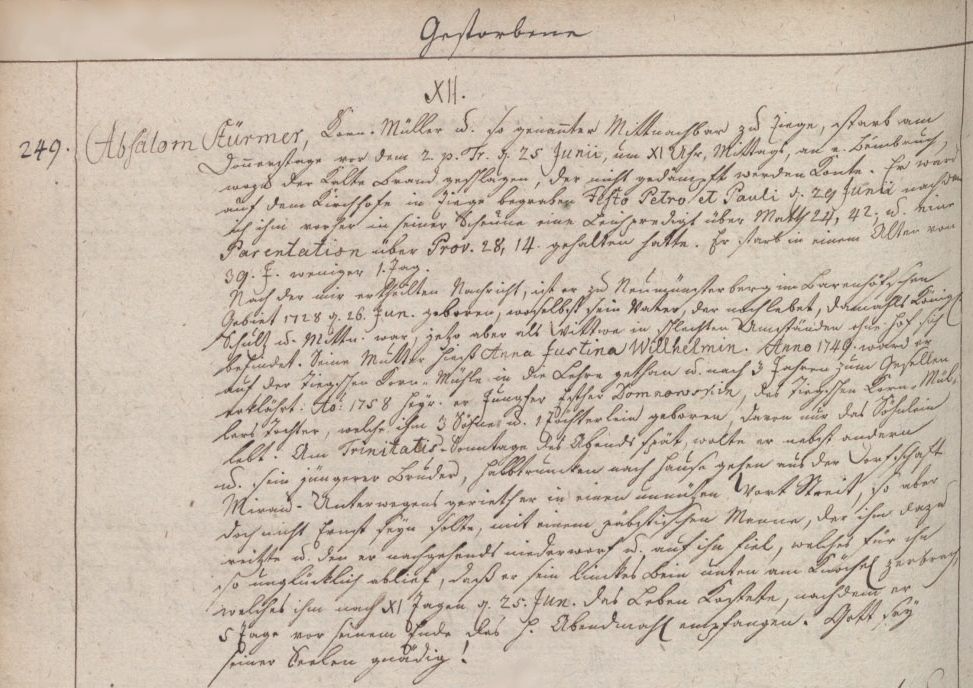 Gestorbene
XII.
249. Absalom Stürmer, Korn-Müller u. so genannter Mittnachbar zu Ziege, starb am
Donnerstage vor dem 2. p. Tr. d. 25 Junii, um XI Uhr, Mittags, an e. Beinbruch,
wozu der Kalte Brand geschlagen, der nicht gedämpft werden Konte. Er ward
auf dem Kirchhofe in Ziege begraben Festo Petro et Pauli d. 29 Junii nachdem
ich ihm vorher in seiner Scheune eine Leichpredigt über Matth 24, 42. u. eine
Parentation über Prov. 28, 14. gehalten hatte. Er starb in einem Alter von
39. J. weniger 1. Tag.
Nach der mir ertheilten Nachricht, ist er zu Neumünsterberg im Barenhöfschen
Gebiet 1728 d. 26. Jun. geboren, woselbst sein Vater, der noch lebet, damahls Königl
Schultz u. Mittn. war, jetzo aber als Wittwer in schlechten Umständen ohne Hof sich
befindet. Seine Mutter hiess Anna Justina Willhelmin. Anno 1749. ward er
auf der Ziegschen Korn-Mühle in die Lehre gethan u. nach 3 Jahren zum Gesellen
erklährt. Ao: 1758 heyr. er Jungfer Esther Domnowskin, des Ziegschen Korn-Mül-
lers Tochter, welche ihm 3 Söhne u. 1 Töchterlein geboren, davon nur das Söhnlein
lebt. Am Trinitatis-Sonntage des Abends spät, wolte er nebst andern
u. sein jüngerer Bruder, halbtruncken nach Hause gehen aus der Dorfschaft
Mirau. Unterwegens gerieth er in einen unnützen Wort Streit, so aber
doch nicht Ernst seyn solte, mit einem päbstischen Manne, der ihn dazu
reitzte u. den er nachgehends niederworf u. auf ihn fiel, welches für ihn
so unglücklich ablief, daß er sein linckes Bein unten am Knöchel zerbrach,
welches ihm nach XI Tagen d. 25. Jun. das Leben Kostete, nachdem er
5 Tage vor seinem Ende das h. Abendmahl empfangen. Gott sey
seiner Seelen gnädig!